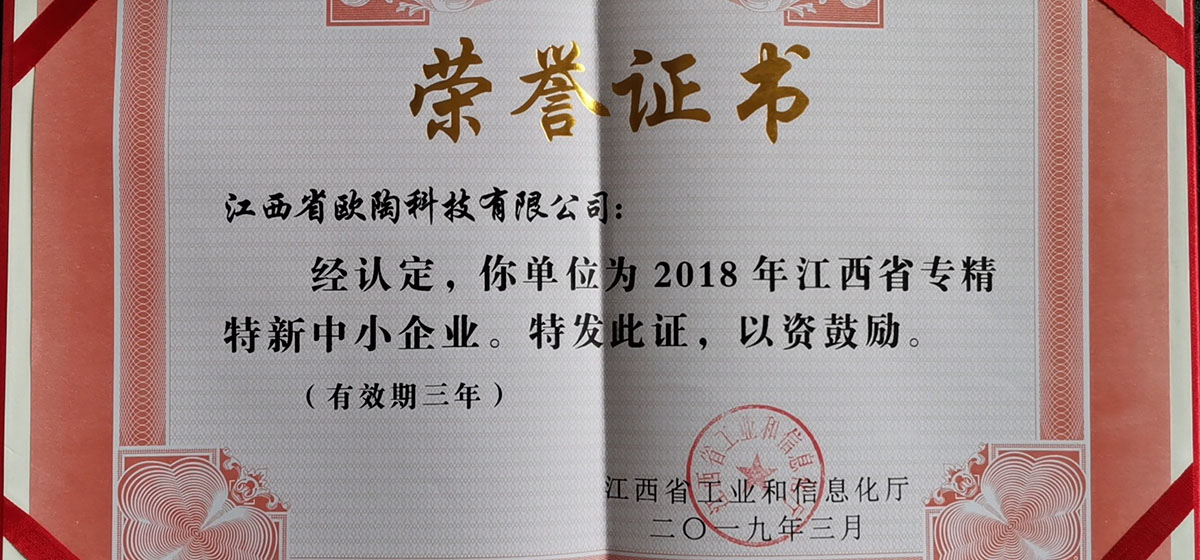 荣誉证书
江西省欧陶科技有限公司:
经认定，你单位为2018年江西省专精
特新中小企业。特发此证，以资鼓励。
（有效期三年）
江西省工业和信息化厅
江西省工业和信息化厅
二〇一九年三月